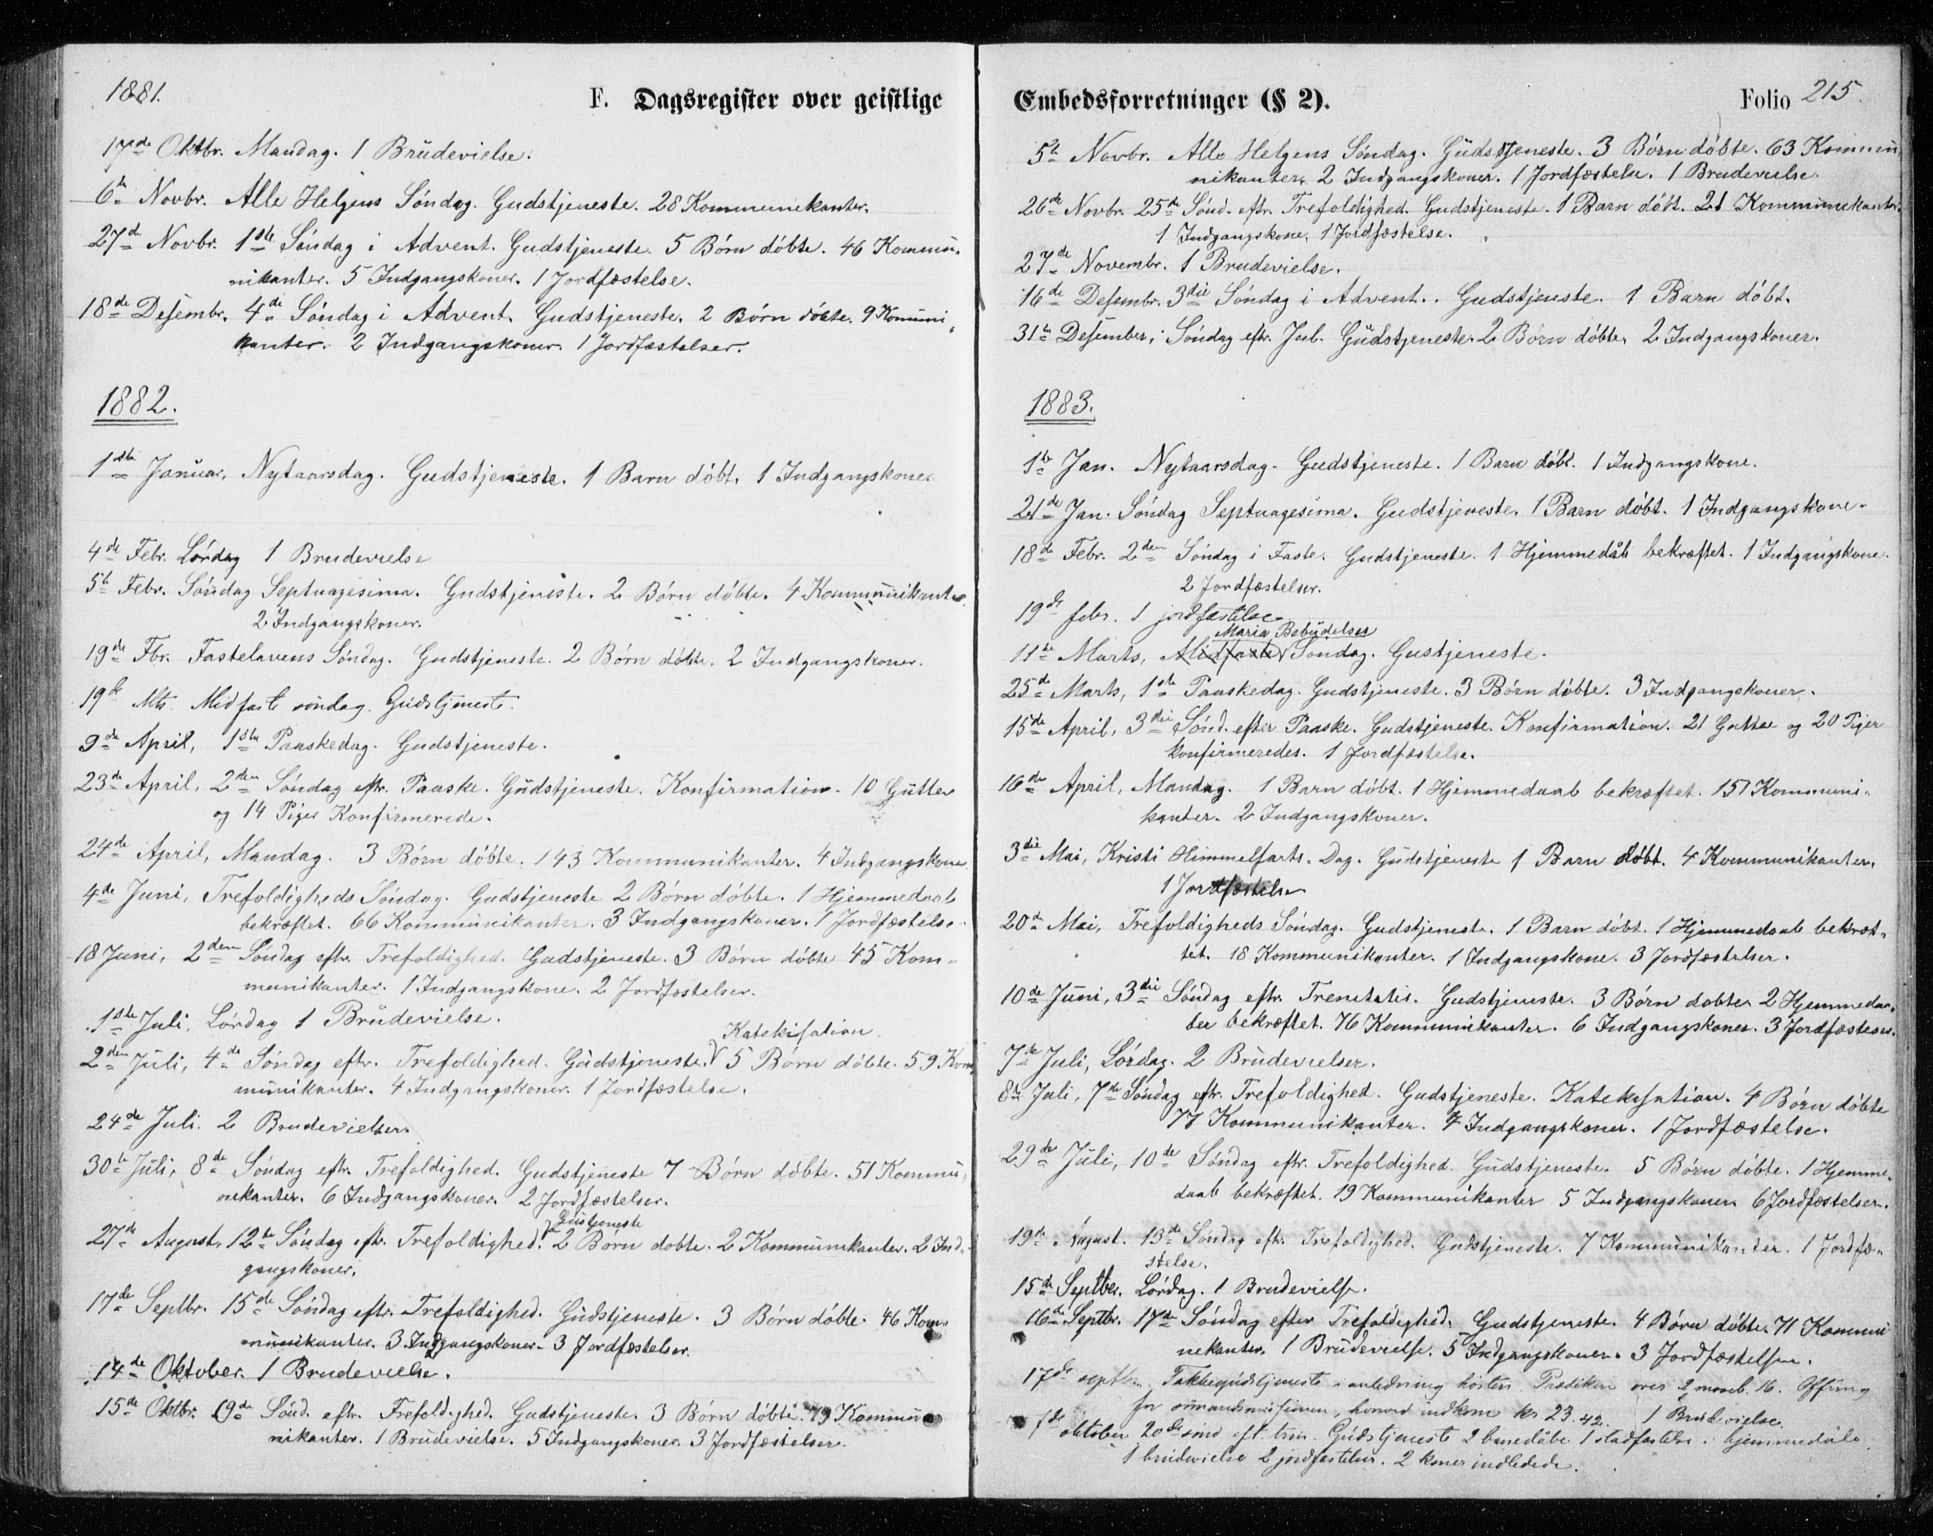 1881.
F. Dagsregister over geistlige
17de Oktbr. Mandag. 1 Brudevielse.
6te Novbr. Alle Helgens Søndag. Gudstjeneste. 28 Kommunikanter.
27de Novbr. 1ste Søndag i Advent. Gudstjeneste. 5 Børn døbte. 46 Kommu-
nikanter. 5 Indgangskoner. 1 Jordfæstelse.
18de Desembr. 4de Søndag i Advent. Gudstjeneste. 2 Børn døbte. 9 Komuni-
kanter. 2 Indgangskoner. 1 Jordfæstelser.
1882.
1ste Januar, Nytaarsdag. Gudstjeneste. 1 Barn døbt. 1 Indgangskone.
4de Febr. Lørdag 1 Brudevielse
5te Febr. Søndag Septuagesima. Gudstjeneste. 2 Børn døbte. 4 Kommunikanter
2 Indgangskoner.
19de Fbr. Fastelavens Søndag. Gudstjeneste. 2 Børn døbte. 2 Indgangskoner.
19de Mts. Midfaste søndag. Gudstjeneste.
9de April, 1ste Paaskedag. Gudstjeneste.
23de April, 2den Søndag eftr. Paaske. Gudstjeneste. Konfirmation. 10 Gutter
og 14 Piger Konfirmerede.
24de April, Mandag. 3 Børn døbte. 143 Kommunikanter. 4 Indgangskoner
4de Juni, Trefoldigheds Søndag. Gudstjeneste 2 Børn døbte. 1 Hjemmedaab
bekræftet. 66 Kommunikanter. 3 Indgangskoner. 1 Jordfæstelse.
18 Juni, 2den Søndag eftr. Trefoldighed. Gudstjeneste. 3 Børn døbte 45 Kom-
munikanter. 1 Indgangskone. 2 Jordfæstelser.
1ste Juli, Lørdag 1 Brudevielse.
Katekisation
2den Juli, 4de Søndag eftr. Trefoldighed. Gudstjeneste. 5 Børn døbte. 59 Kom
munikanter. 4 Indgangskoner. 1 Jordfæstelse.
24de Juli. 2 Brudevielser.
30te Juli, 8de Søndag eftr. Trefoldighed. Gudstjeneste 7 Børn døbte. 51 Kommu-
nikanter. 6 Indgangskoner. 2 Jordfæstelser.
Gustjeneste
27de August, 12te Søndag eftr. Trefoldighed. 2 Børn døbte. 2 Kommunikanter. 2 Ind-
gangskoner.
17de Septbr. 15de Søndag eftr. Trefoldighed. Gudstjeneste. 3 Børn døbte. 46 Kom-
munikanter. 3 Indgangskoner. 3 Jordfæstelser.
14de Oktober. 1 Brudevielse.
15de Oktbr. 19de Sønd. eftr. Trefoldighed. Gudstjeneste. 3 Børn døbte. 49 Kommu
nikanter. 1 Brudevielse. 5 Indgangskoner. 3 Jordfæstelser.
Embedsforretninger (§ 2).
Folio 215
5te Novbr. Alle Helgens Søndag. Gudstjeneste. 3 Børn døbte. 63 Kommu
nikanter. 2 Indgangskoner. 1 Jordfæstelse. 1 Brudevielse.
26de Novbr. 25de Sønd. eftr. Trefoldighed. Gudstjeneste. 1 Barn døbt. 21 Kommunikanter.
1 Indgangskone. 1 Jordfæstelse.
27de Novembr. 1 Brudevielse.
16de Desembr. 3die Søndag i Advent. Gudstjeneste. 1 Barn døbt.
31te Desember, Søndag eftr. Jul. Gudstjeneste 2 Børn døbte. 2 Indgangskoner.
1883.
1te Jan. Nytaarsdag. Gudstjeneste. 1 Barn døbt. 1 Indgangskone.
21de Jan. Søndag Septuagesima. Gudstjeneste. 1 Barn døbt. 1 Indgangskone.
18de Febr. 2den Søndag i Faste. Gudstjeneste. 1 Hjemmedåb bekræftet. 1 Indgangskone.
2 Jordfæstelser.
19de febr. 1 jordfæstelse
Maria Bebudelses
11te Marts, Midfaste Søndag. Gustjeneste.
25de Marts, 1ste Paaskedag. Gudstjeneste. 3 Børn døbte. 3 Indgangskoner.
15de April, 3die Sønd. efter Paaske. Gudstjeneste. Konfirmation. 21 Gutter og 20 Piger
konfirmeredes. 1 Jordfæstelse.
16de April, Mandag. 1 Barn døbt. 1 Hjemmedaab bekræftet. 151 Kommuni-
kanter. 2 Indgangskoner.
3die Mai, Kristi Himmelfarts. Dag. Gudstjeneste 1 Barn døbt. 4 Kommunikanter.
1 Jordfæstelse
20de Mai, Trefoldigheds Søndag. Gudstjeneste. 1 Barn døbt. 1 Hjemmedaab bekræf-
tet. 18 Kommunikanter. 1 Indgangskone. 3 Jordfæstelser.
10de Juni, 3die Søndag eftr. Trenitatis. Gudstjeneste. 3 Børn døbte 2 Hjemmedaa-
ber bekræftet. 76 Kommunikanter. 6 Indgangskoner. 3 Jordfæstelser.
7de Juli, Lørdag. 2 Brudevielser.
8de Juli, 7de Søndag eftr. Trefoldighed. Gudstjeneste. Katekisation. 4 Børn døbte
77 Kommunikanter. 4 Indgangskoner. 1 Jordfæstelse.
29de Juli, 10de Søndag eftr. Trefoldighed. Gudstjeneste. 5 Børn døbte. 1 Hjemme-
daab bekræftet. 19 Kommunikanter 5 Indgangskoner 6 Jordfæstelser.
19de August. 13de Søndag eftr. Trefoldighed. Gudstjeneste. 7 Kommunikanter. 1 Jordfæ-
stelse.
15de Septber. Lørdag. 1 Brudevielse.
16de Septbr. 17de Søndag efter Trefoldighed. Gudstjeneste. 4 Børn døbte 71 Kommu
nikanter. 1 Brudevielse. 5 Indgangskoner. 3 Jordfæstelser.
17de septbr. Takkegudstjeneste i anledning høsten. Prædiken over 2 moseb. 16. Ofring
for hvorved indkom kr 23.42. 1 Brudevielse
oktober 20de sønd eft. trin. Gudstjeneste 2 barnedåbe 1 stadfæstelse hjemmedåb
1 brudevielse 2 jordfæstelser. 2 koner indledede.